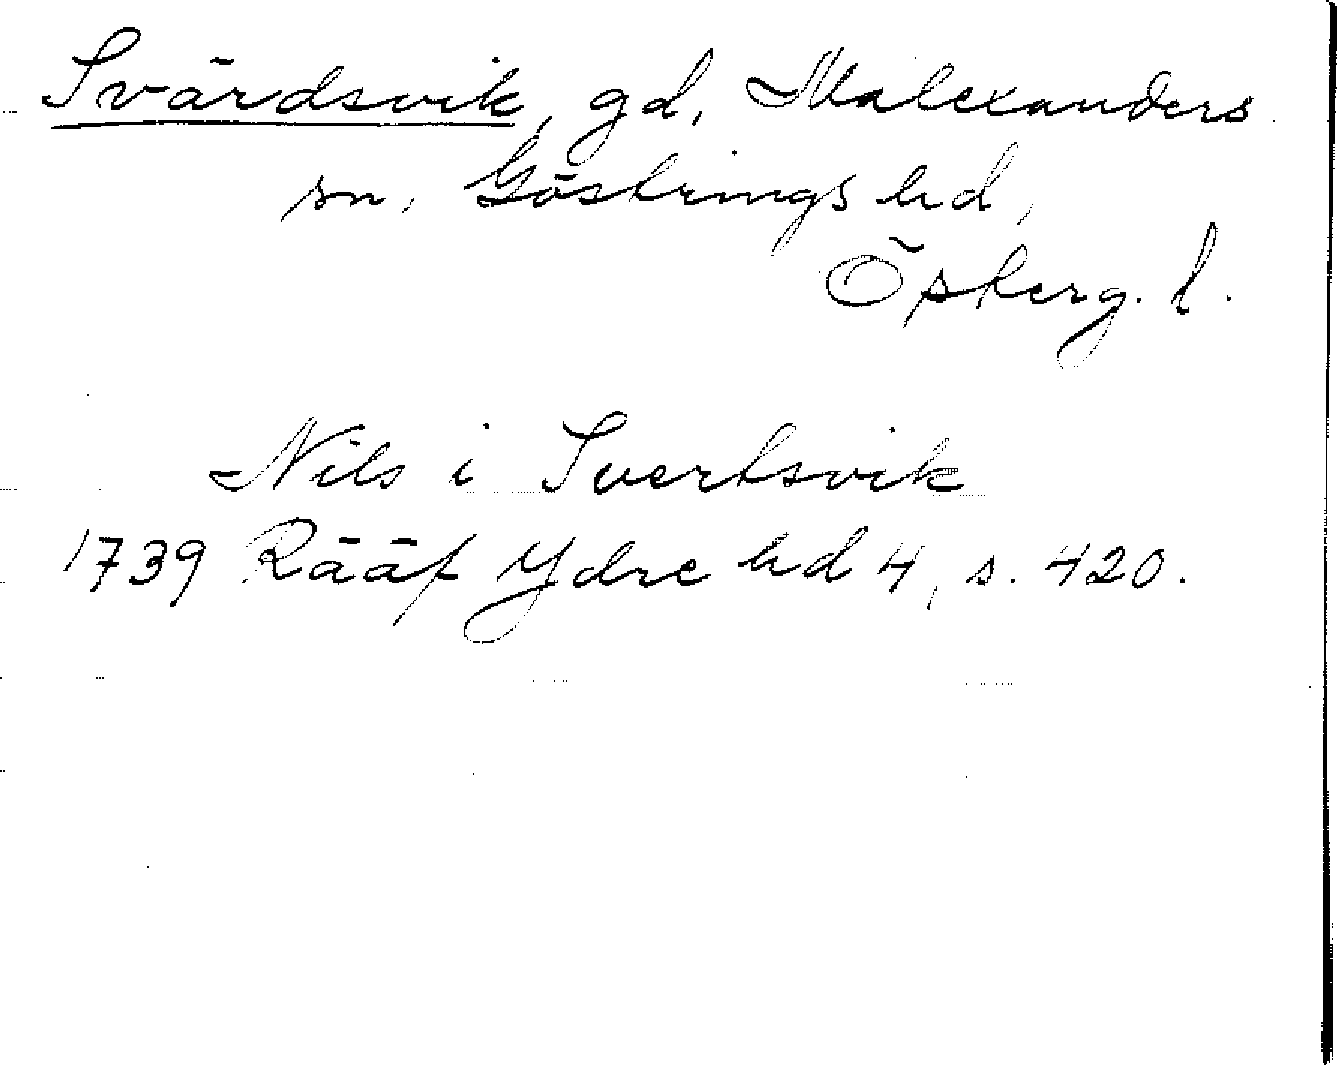 Svärdsvik, gd, Malexanders
sn, Göstrings hd,
Österg. l.
Nils i Svertsvik
1739 Rääf Ydre hd 4, s. 420.